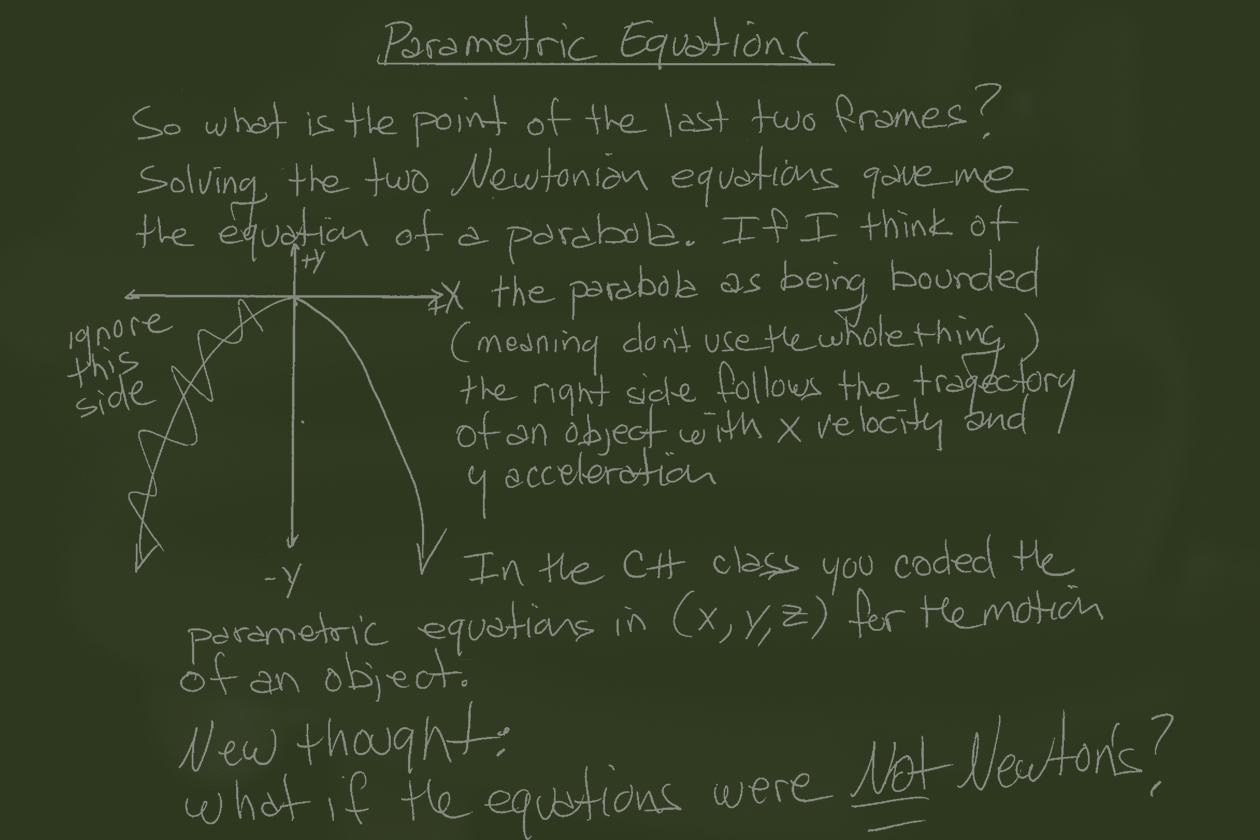 Parametric Equations
So what is the point of the last two frames?
Solving the two Newtonian equations gave me
the equation of a parabola. If I think of
+y
+x the parabola as being bounded
ignore
this
side
(meaning don't use the whole thing)
the right side follows the tragectory
of an object with x velocity and
y acceleration
-y
In the C++ class you coded the
parametric equations in (x, y, z) for the motion
of an object.
New thought:
what if the equations were Not Newton's?